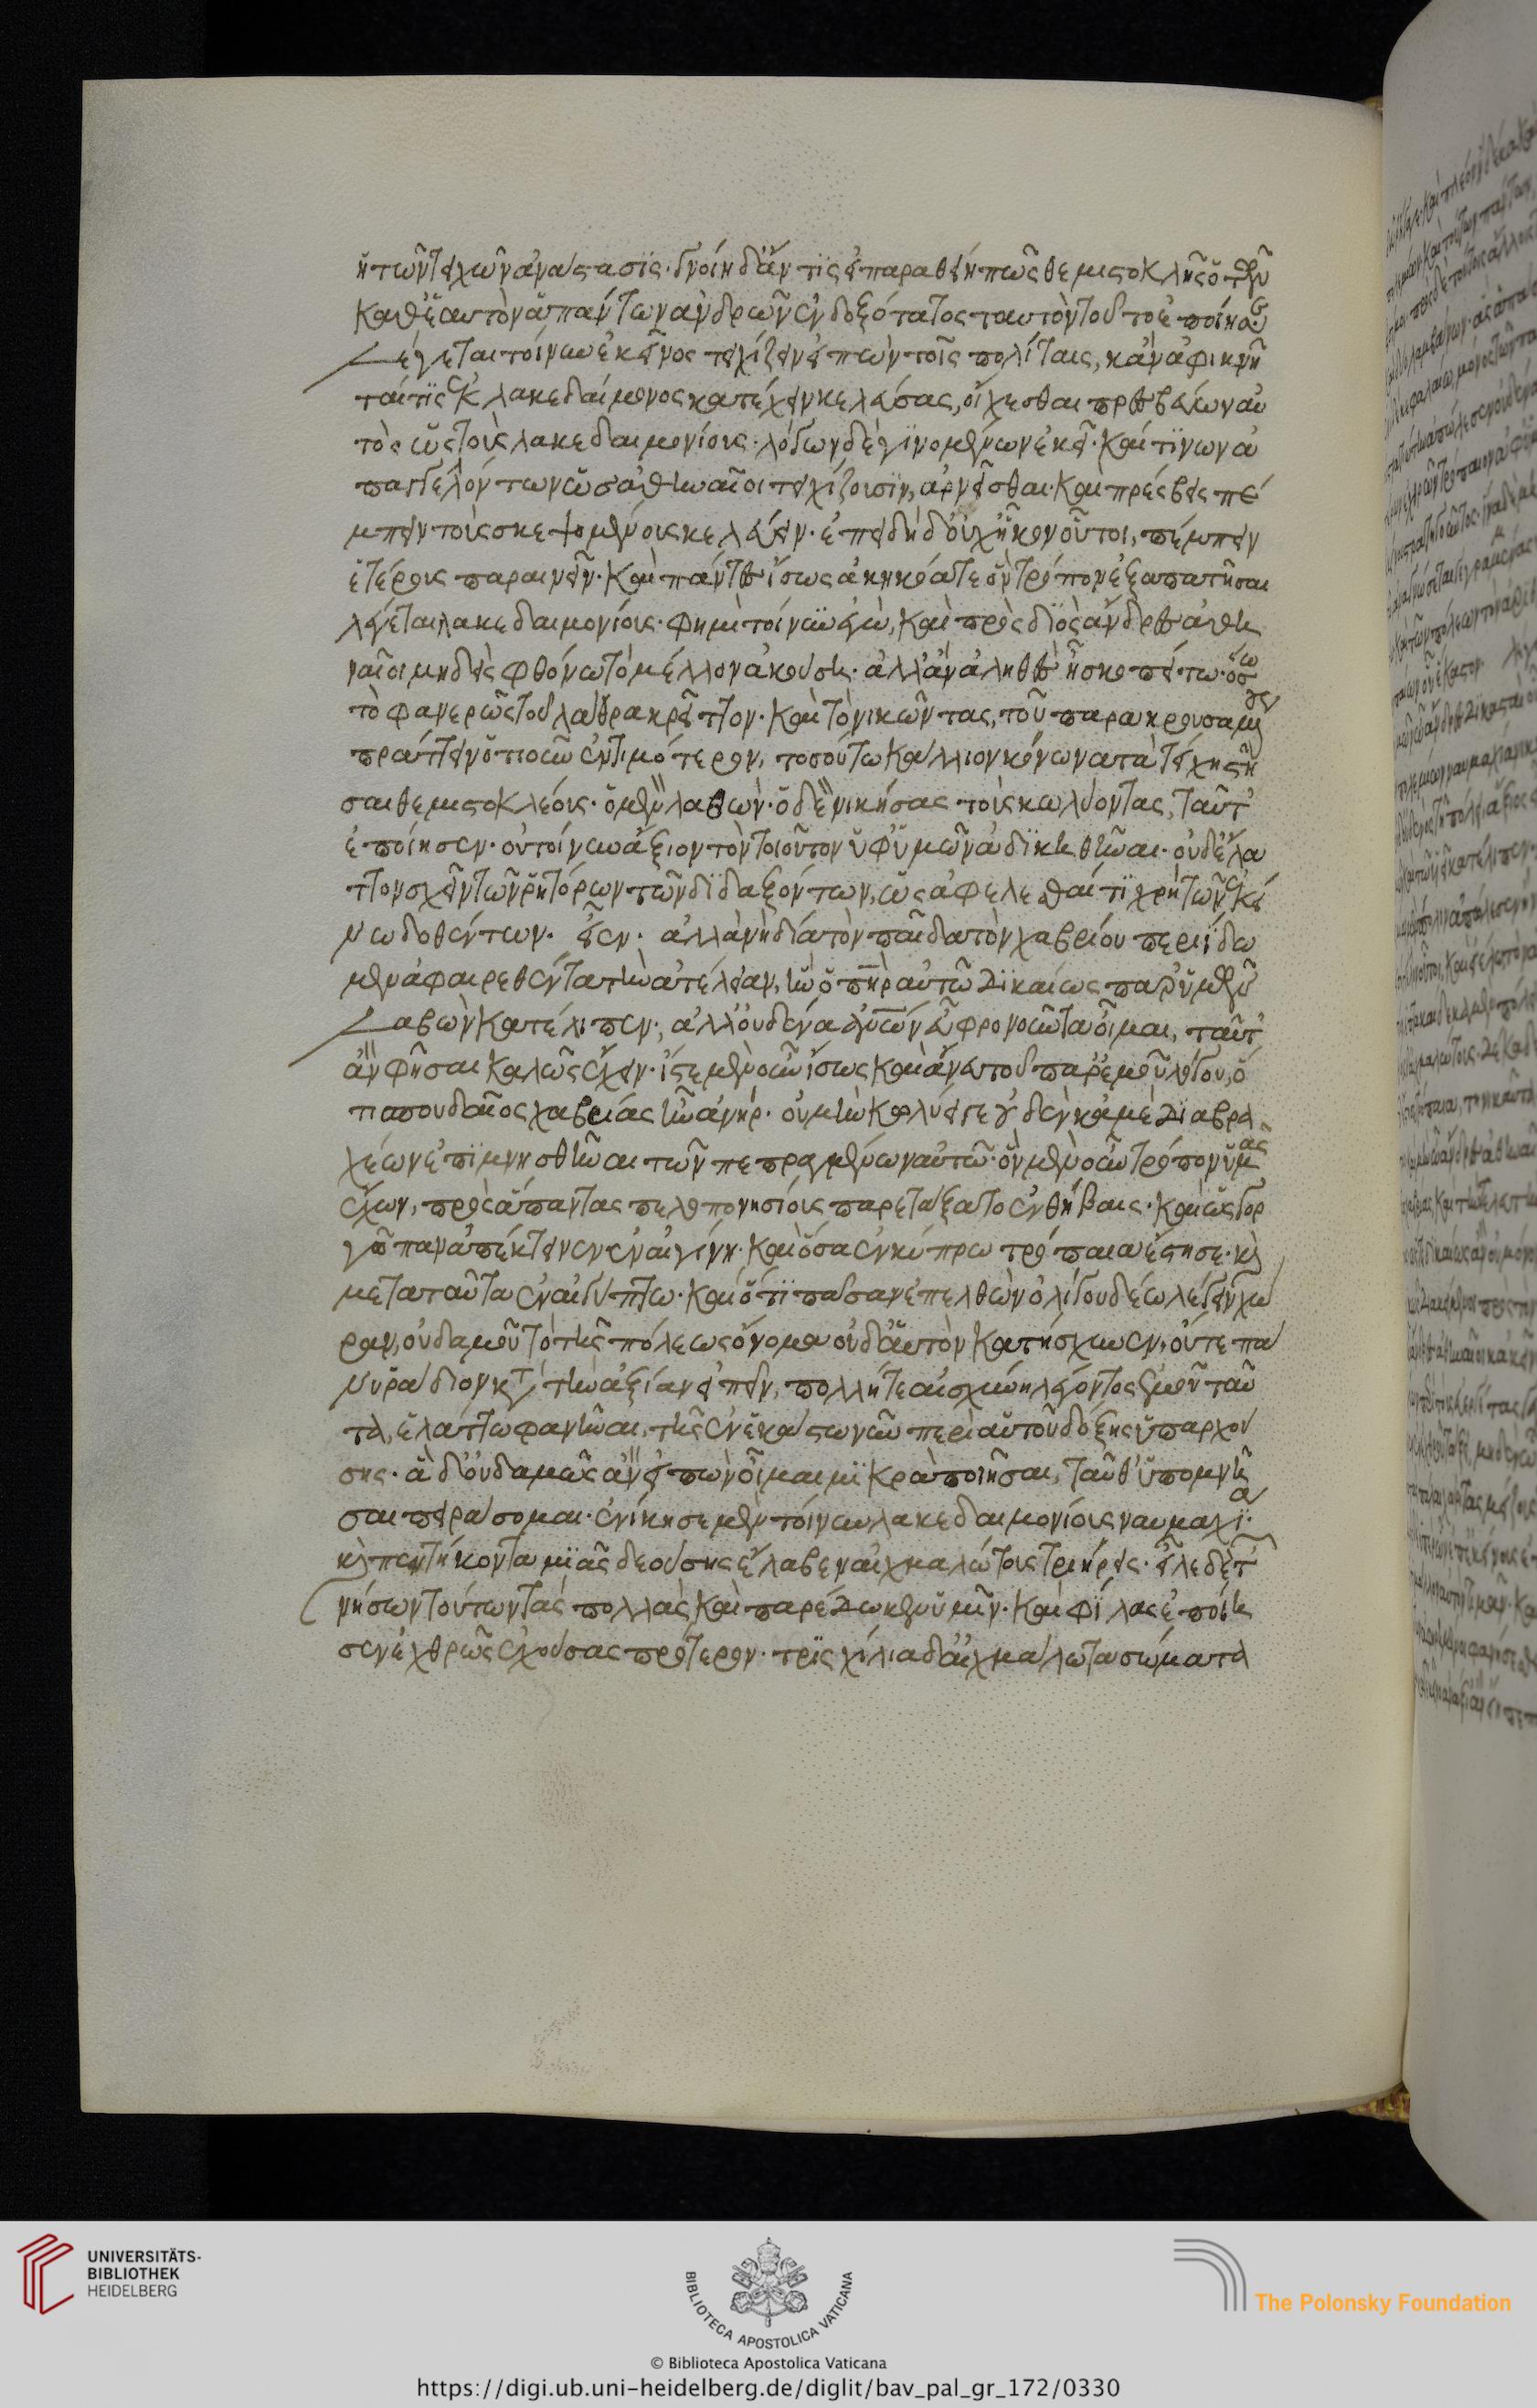 ἡ τῶν τειχῶν ἀνάστασις· γνοίη δ' ἄν τις εἰ παραθείη πῶς θεμιστοκλῆς ὁ τῶν
καθ' ἑαυτὸν ἁπάντων ἀνδρῶν ἐνδοξότατος ταυτὸν τοῦτο ἐποίησεν·
λέγεται τοίνυν ἐκεῖνος τειχίζειν εἰπὼν τοῖς πολίταις, κἂν ἀφικνῆ
ταί τις ἐκ λακεδαίμονος κατέχειν κελεύσας, οἴχεσθαι πρεσβεύων αὐ
τὸς ὡς τοὺς λακεδαιμονίους· λόγων δὲ γινομένων ἐκεῖ· καί τινων ἀ
παγγελλόντων ὡς ἀθηναῖοι τειχίζουσιν, ἀρνεῖσθαι· καὶ πρέσβεις πέ
μπειν τοὺς σκεψομένους κελεύειν· ἐπειδὴ δ' οὐχ ἧκον οὗτοι, πέμπειν
ἑτέρους παραινεῖν· καὶ πάντες ἴσως ἀκηκόατε ὃν τρόπον ἐξαπατῆσαι
λέγεται λακεδαιμονίους· φημὶ τοίνυν ἐγὼ, καὶ πρὸς διὸς ἄνδρες ἀθη
ναῖοι μηδεὶς φθόνω τὸ μέλλον ἀκούση· ἀλλ' ἂν ἀληθὲς ἦ σκοπείτω· ὅσω
τὸ φανερῶς τοῦ λάθρα κρεῖττον· καὶ τὸ νικῶντας, τοῦ παρακρουσαμένους
πράττειν ὁτιοῦν ἐντιμότερον, τοσούτω κάλλιον κόνωνα τὰ τείχη στῆ
σαι θεμιστοκλέους· ὁ μὲν λαθὼν· ὁ δὲ νικήσας τοὺς κωλύοντας, ταῦτ'
ἐποίησεν· οὐ τοίνυν ἄξιον τὸν τοιοῦτον ὑφ' ὑμῶν ἀδικηθῆναι· οὐδ' ἔλα
ττον σχεῖν τῶν ῥητόρων τῶν διδαξόντων, ὡς ἀφελέσθαι τι χρὴ τῶν ἐκεί
νω δοθέντων. εἶεν· ἀλλὰ νὴ δία τὸν παῖδα τὸν χαβρίου περιίδω
μεν ἀφαιρεθέντα τὴν ἀτέλειαν, ἣν ὁ πατὴρ αὐτῶ δικαίως παρ' ὑμῶν
λαβὼν κατέλιπεν·, ἀλλ' οὐδένα ἀνθρώπων εὖ φρονοῦντα οἶμαι, ταῦτ'
ἂν φῆσαι καλῶς ἔχειν· ἴστε μὲν οὖν ἴσως καὶ ἄνευ τοῦ παρ' ἐμοῦ λόγου, ὅ
τι σπουδαῖος χαβρίας ἦν ἀνήρ· οὐ μὴν κωλύει γ' οὐδὲν κἀμὲ διὰ βρα
χέων ἐπιμνησθῆναι τῶν πεπραγμένων αὐτῶ· ὃν μὲν οὖν τρόπον ὑμᾶς
ἔχων, πρὸς ἅπαντας πελοπονησίους παρετάξατο ἐν θήβαις· καὶ ὡς γορ
γώπαν ἀπέκτεινεν ἐν αἰγίνη· καὶ ὅσα ἐν κύπρω τρόπαια ἔστησε· καὶ
μετὰ ταῦτα ἐν αἰγύπτω· καὶ ὅτι πᾶσαν ἐπελθὼν ὀλίγου δέω λέγειν χώ
ραν, οὐδαμοῦ τὸ τῆς πόλεως ὄνομα οὐδ' αὑτὸν κατήσχυνεν, οὔτε πά
νυ ῥάδιον κατὰ τὴν ἀξίαν εἰπεῖν, πολλή τε αἰσχύνη λέγοντος ἐμοῦ ταῦ
τα, ἐλάττω φανῆναι, τῆς ἐν ἑκάστω νῦν περὶ αὐτοῦ δόξης ὑπαρχού
σης· ἃ δ' οὐδαμῶς ἂν εἰπὼν οἶμαι μικρὰ ποιῆσαι, ταῦθ' ὑπομνῆ
σαι πειράσομαι· ἐνίκησε μὲν τοίνυν λακεδαιμονίους ναυμαχία·
καὶ πεντήκοντα μιᾶς δεούσης ἔλαβεν αἰχμαλώτους τριήρεις· εἷλε δὲ τῶν
νήσων τούτων τὰς πολλὰς καὶ παρέδωκεν ὑμῖν· καὶ φίλας ἐποίη
σεν ἐχθρῶς ἐχούσας πρότερον· τρὶς χίλια δ' αἰχμάλωτα σώματα
UNIVERSITÄTS-
BIBLIOTHEK
HEIDELBERG
BIBLIOTECA APOSTOLICA VATICANA
The Polonsky Foundation
© Biblioteca Apostolica Vaticana
https://digi.ub.uni-heidelberg.de/diglit/bav_pal_gr_172/0330